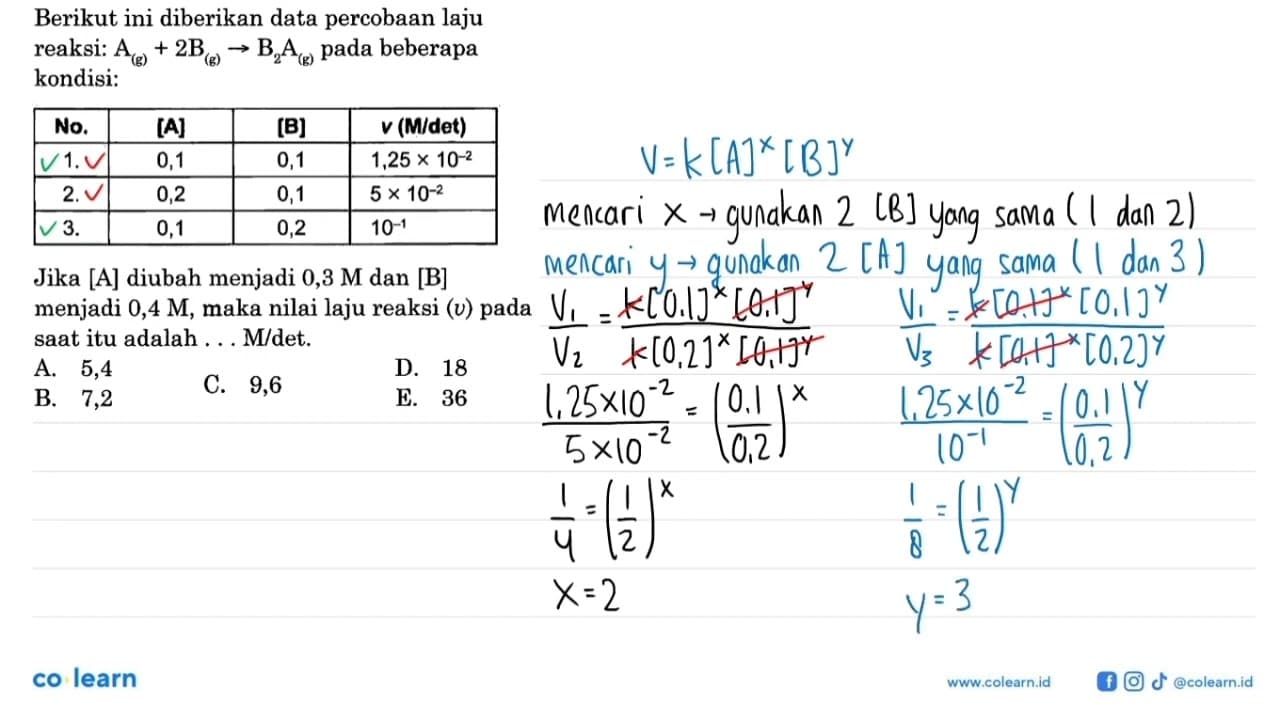 Berikut ini diberikan data percobaan laju
reaksi: A(g) + 2B(g) → B₂A(g) pada beberapa
kondisi:
No. [A] [B] v (M/det)
✓ 1. ✓ 0,1 0,1 1,25 × 10⁻²
2. ✓ 0,2 0,1 5 × 10⁻²
✓ 3. 0,1 0,2 10⁻¹
Jika [A] diubah menjadi 0,3 M dan [B]
menjadi 0,4 M, maka nilai laju reaksi (υ) pada
saat itu adalah . . . M/det.
A. 5,4
B. 7,2
C. 9,6
D. 18
E. 36
V = k [A]ˣ [B]ʸ
mencari x → gunakan 2 [B] yang sama (1 dan 2)
mencari y → gunakan 2 [A] yang sama (1 dan 3)
V₁/V₂ = k[0,1]ˣ [0,1]ʸ / k[0,2]ˣ [0,1]ʸ
1,25×10⁻² / 5×10⁻² = (0,1/0,2)ˣ
1/4 = (1/2)ˣ
x = 2
V₁/V₃ = k[0,1]ˣ [0,1]ʸ / k[0,1]ˣ [0,2]ʸ
1,25×10⁻² / 10⁻¹ = (0,1/0,2)ʸ
1/8 = (1/2)ʸ
y = 3
co learn
www.colearn.id
@colearn.id